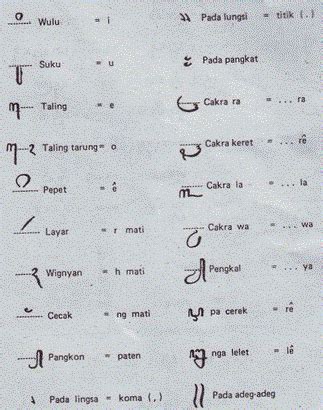 Wulu = i
Suku = u
Taling = e
Taling tarung = o
Pepet = ê
Layar = r mati
Wignyan = h mati
Cecak = ng mati
Pangkon = paten
Pada lingsa = koma (,)
Pada lungsi = titik (.)
Pada pangkat
Cakra ra = ... ra
Cakra keret = ... rê
Cakra la = ... la
Cakra wa = ... wa
Pengkal = ... ya
pa cerek = rê
nga lelet = lê
Pada adeg-adeg